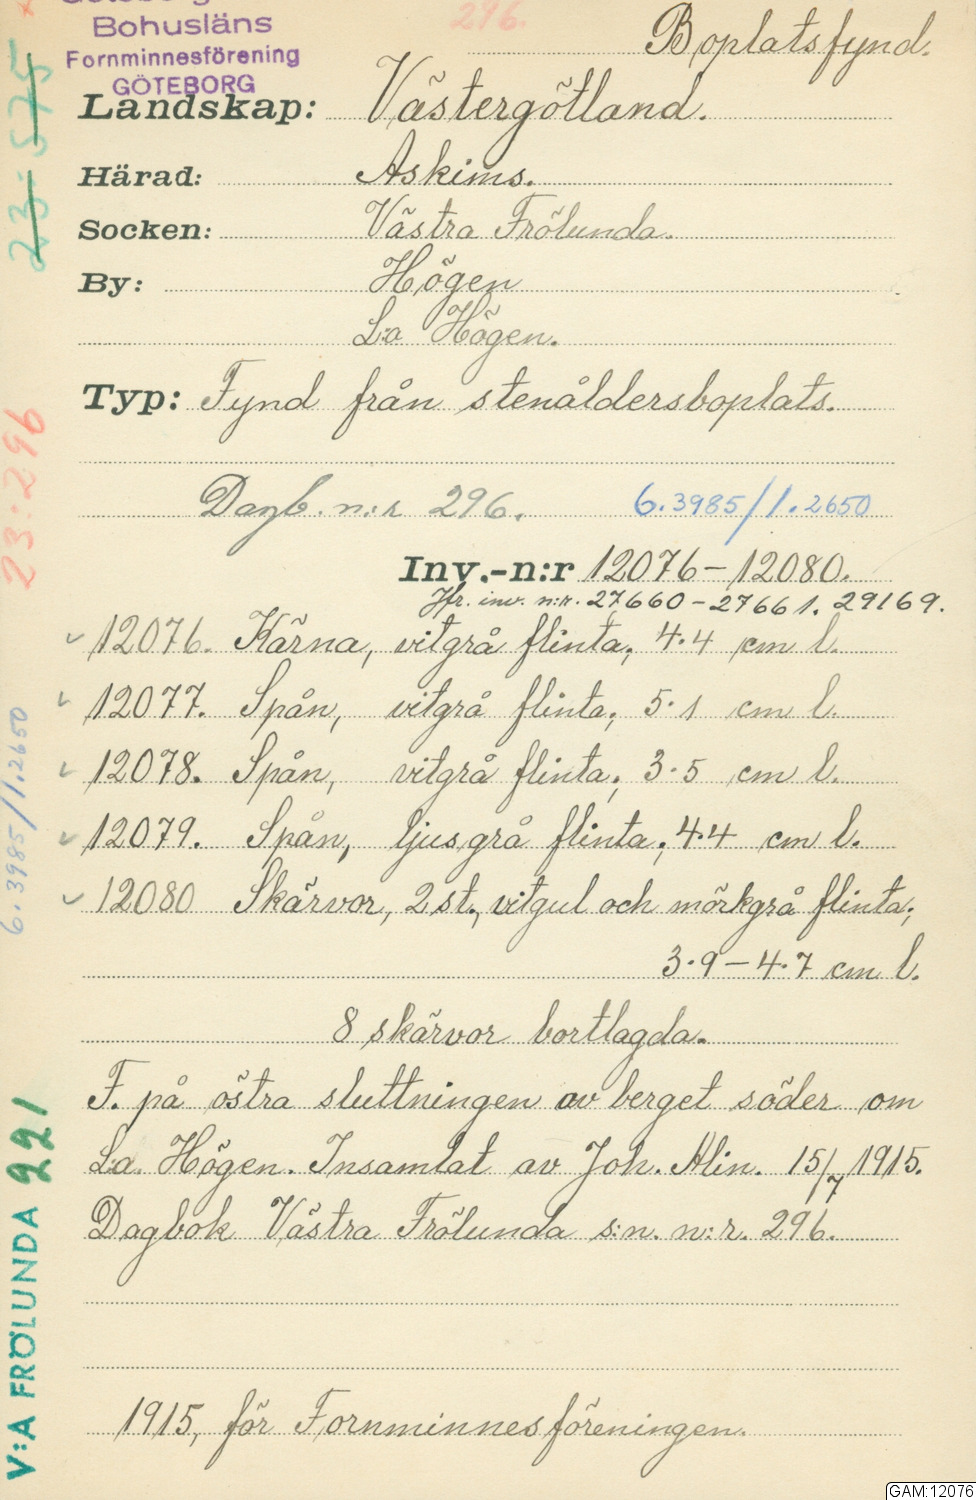 Bohusläns
Fornminnesförening
GÖTEBORG
296.
Boplatsfynd.
Landskap: Västergötland.
Härad: Askims.
Socken: Västra Frölunda.
By: Högen
L:a Högen.
Typ: Fynd från stenåldersboplats.
Dagb. n:r 296. 6.3985/1.2650
Inv.-n:r 12076-12080.
Jfr. inv. n:r. 27660-27661. 29169.
12076. Kärna, vitgrå flinta; 4.4 cm l.
12077. Spån, vitgrå flinta; 5.1 cm l.
12078. Spån, vitgrå flinta; 3.5 cm l.
12079. Spån, ljusgrå flinta; 4.4 cm l.
12080 Skärvor, 2 st., vitgul och mörkgrå flinta;
3.9-4.7 cm l.
8 skärvor bortlagda.
F. på östra sluttningen av berget söder om
L:a Högen. Insamlat av Joh. Alin. 15/7 1915.
Dagbok Västra Frölunda s:n. n:r. 296.
1915, för Fornminnesföreningen.
23-575
23-296
6.3985/1.2650
V:A FRÖLUNDA 221
GAM:12076